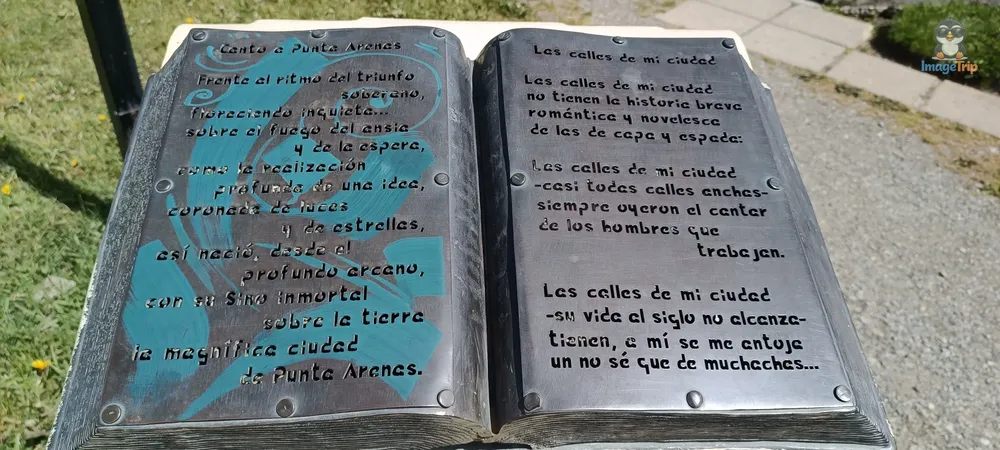 Canto a Punta Arenas
Frente al ritmo del triunfo
soberano,
floreciendo inquieta...
sobre el fuego del ansia
y de la espera,
como la realización
profunda de una idea,
coronada de luces
y de estrellas,
así nació, desde el
profundo arcano,
con su Sino inmortal
sobre la tierra
la magnífica ciudad
de Punta Arenas.
Las calles de mi ciudad
Las calles de mi ciudad
no tienen la historia brava
romántica y novelesca
de las de capa y espada:
Las calles de mi ciudad
-casi todas calles anchas-
siempre oyeron el cantar
de los hombres que
trabajan.
Las calles de mi ciudad
-su vida al siglo no alcanza-
tienen, a mí se me antoja
un no sé que de muchachas...
ImageTrip